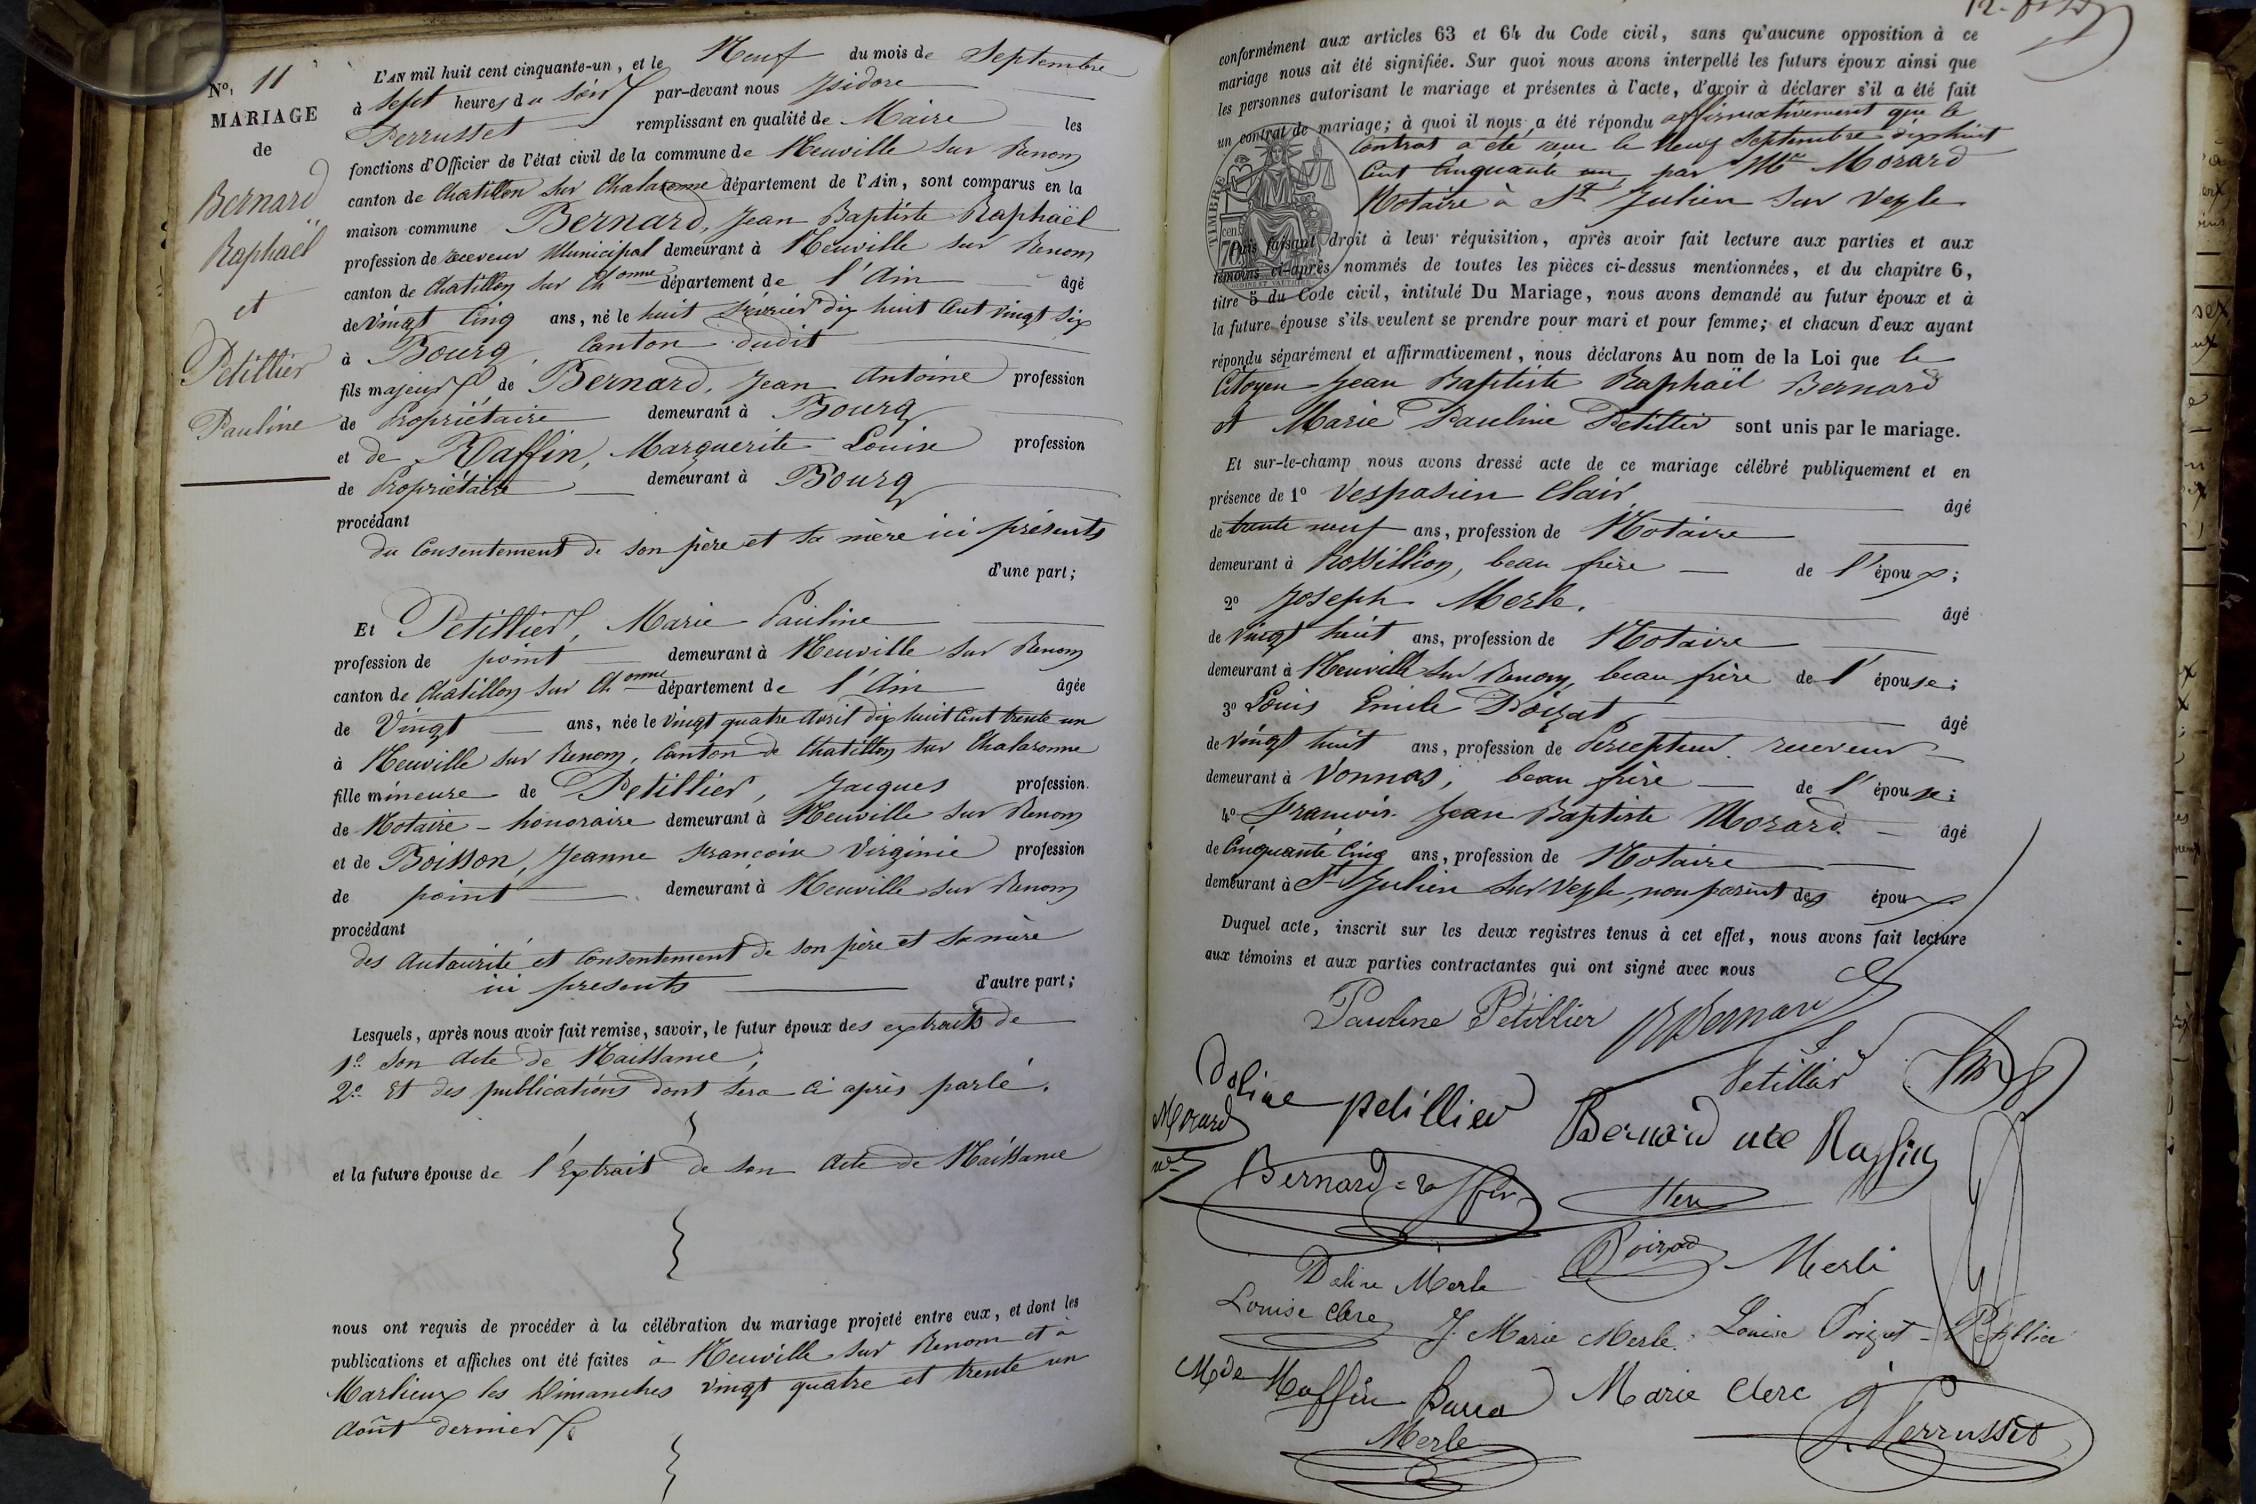 No. 11
MARIAGE
de
Bernard
Raphaël
et
Petillier
Pauline
L'AN mil huit cent cinquante-un, et le Neuf du mois de Septembre
à Sept heures du Soir par-devant nous Isidore
Perrusset remplissant en qualité de Maire les
fonctions d'Officier de l'état civil de la commune de Neuville sur Renom
canton de Chatillon sur Chalaronne département de l'Ain, sont comparus en la
maison commune Bernard, Jean Baptiste Raphaël
profession de receveur Municipal demeurant à Neuville sur Renom
canton de Chatillon sur Chonne département de l'Ain âgé
de Vingt Cinq ans, né le huit février dix huit Cent vingt Six
à Bourg, Canton dudit
fils majeur de Bernard, Jean Antoine profession
de Propriétaire demeurant à Bourg
et de Raffin, Marguerite Louise profession
de Propriétaire demeurant à Bourg
procédant
du Consentement de son père et sa mère ici présents
d'une part;
Et Petillier, Marie Pauline
profession de point demeurant à Neuville sur Renom
canton de Chatillon sur Chonne département de l'Ain âgée
de Vingt ans, née le vingt quatre Avril dix huit Cent trente un
à Neuville sur Renom, Canton de Chatillon sur Chalaronne
fille mineure de Petillier, Jacques profession
de Notaire - honoraire demeurant à Neuville sur Renom
et de Boisson, Jeanne Françoise Virginie profession
de point demeurant à Neuville sur Renom
procédant
des Autorité et Consentement de son père et sa mère
ici présents d'autre part;
Lesquels, après nous avoir fait remise, savoir, le futur époux des extraits de
1º Son Acte de Naissance;
2º Et des publications dont sera ci après parlé.
et la future épouse de l'Extrait de son Acte de Naissance
nous ont requis de procéder à la célébration du mariage projeté entre eux, et dont les
publications et affiches ont été faites à Neuville sur Renom et à
Marlieux les Dimanches vingt quatre et trente un
Août dernier
conformément aux articles 63 et 64 du Code civil, sans qu'aucune opposition à ce
mariage nous ait été signifiée. Sur quoi nous avons interpellé les futurs époux ainsi que
les personnes autorisant le mariage et présentes à l'acte, d'avoir à déclarer s'il a été fait
un contrat de mariage; à quoi il nous a été répondu affirmativement que le
Contrat a été reçu le Neuf Septembre dix huit
Cent Cinquante un, par Me Morard
Notaire à St Julien sur Veyle
TIMBRE
70 cent
Puis faisant droit à leur réquisition, après avoir fait lecture aux parties et aux
témoins ci-après nommés de toutes les pièces ci-dessus mentionnées, et du chapitre 6,
titre 5 du Code civil, intitulé Du Mariage, nous avons demandé au futur époux et à
la future épouse s'ils veulent se prendre pour mari et pour femme; et chacun d'eux ayant
répondu séparément et affirmativement, nous déclarons Au nom de la Loi que le
Citoyen Jean Baptiste Raphaël Bernard
et Marie Pauline Petillier sont unis par le mariage.
Et sur-le-champ nous avons dressé acte de ce mariage célébré publiquement et en
présence de 1º Vespasien Clair âgé
de trente neuf ans, profession de Notaire
demeurant à Rossillion, beau frère de l'époux;
2º Joseph Merle. âgé
de Vingt huit ans, profession de Notaire
demeurant à Neuville sur Renom, beau frère de l'épouse;
3º Louis Emile Poizat âgé
de Vingt huit ans, profession de Percepteur receveur
demeurant à Vonnas, beau frère de l'épouse;
4º François Jean Baptiste Morard âgé
de Cinquante Cinq ans, profession de Notaire
demeurant à St Julien sur Veyle, non parent des époux
Duquel acte, inscrit sur les deux registres tenus à cet effet, nous avons fait lecture
aux témoins et aux parties contractantes qui ont signé avec nous
Pauline Petillier Bernard
Petillier
Daline petillier
Bernard née Raffin
Morard
Bernard = raffin
Daline Merle Poizat Merle
Louise Clere J. Marie Merle Louise Poizat - Petillier
Mde Raffin Marie Clerc
Merle
J. Perrusset